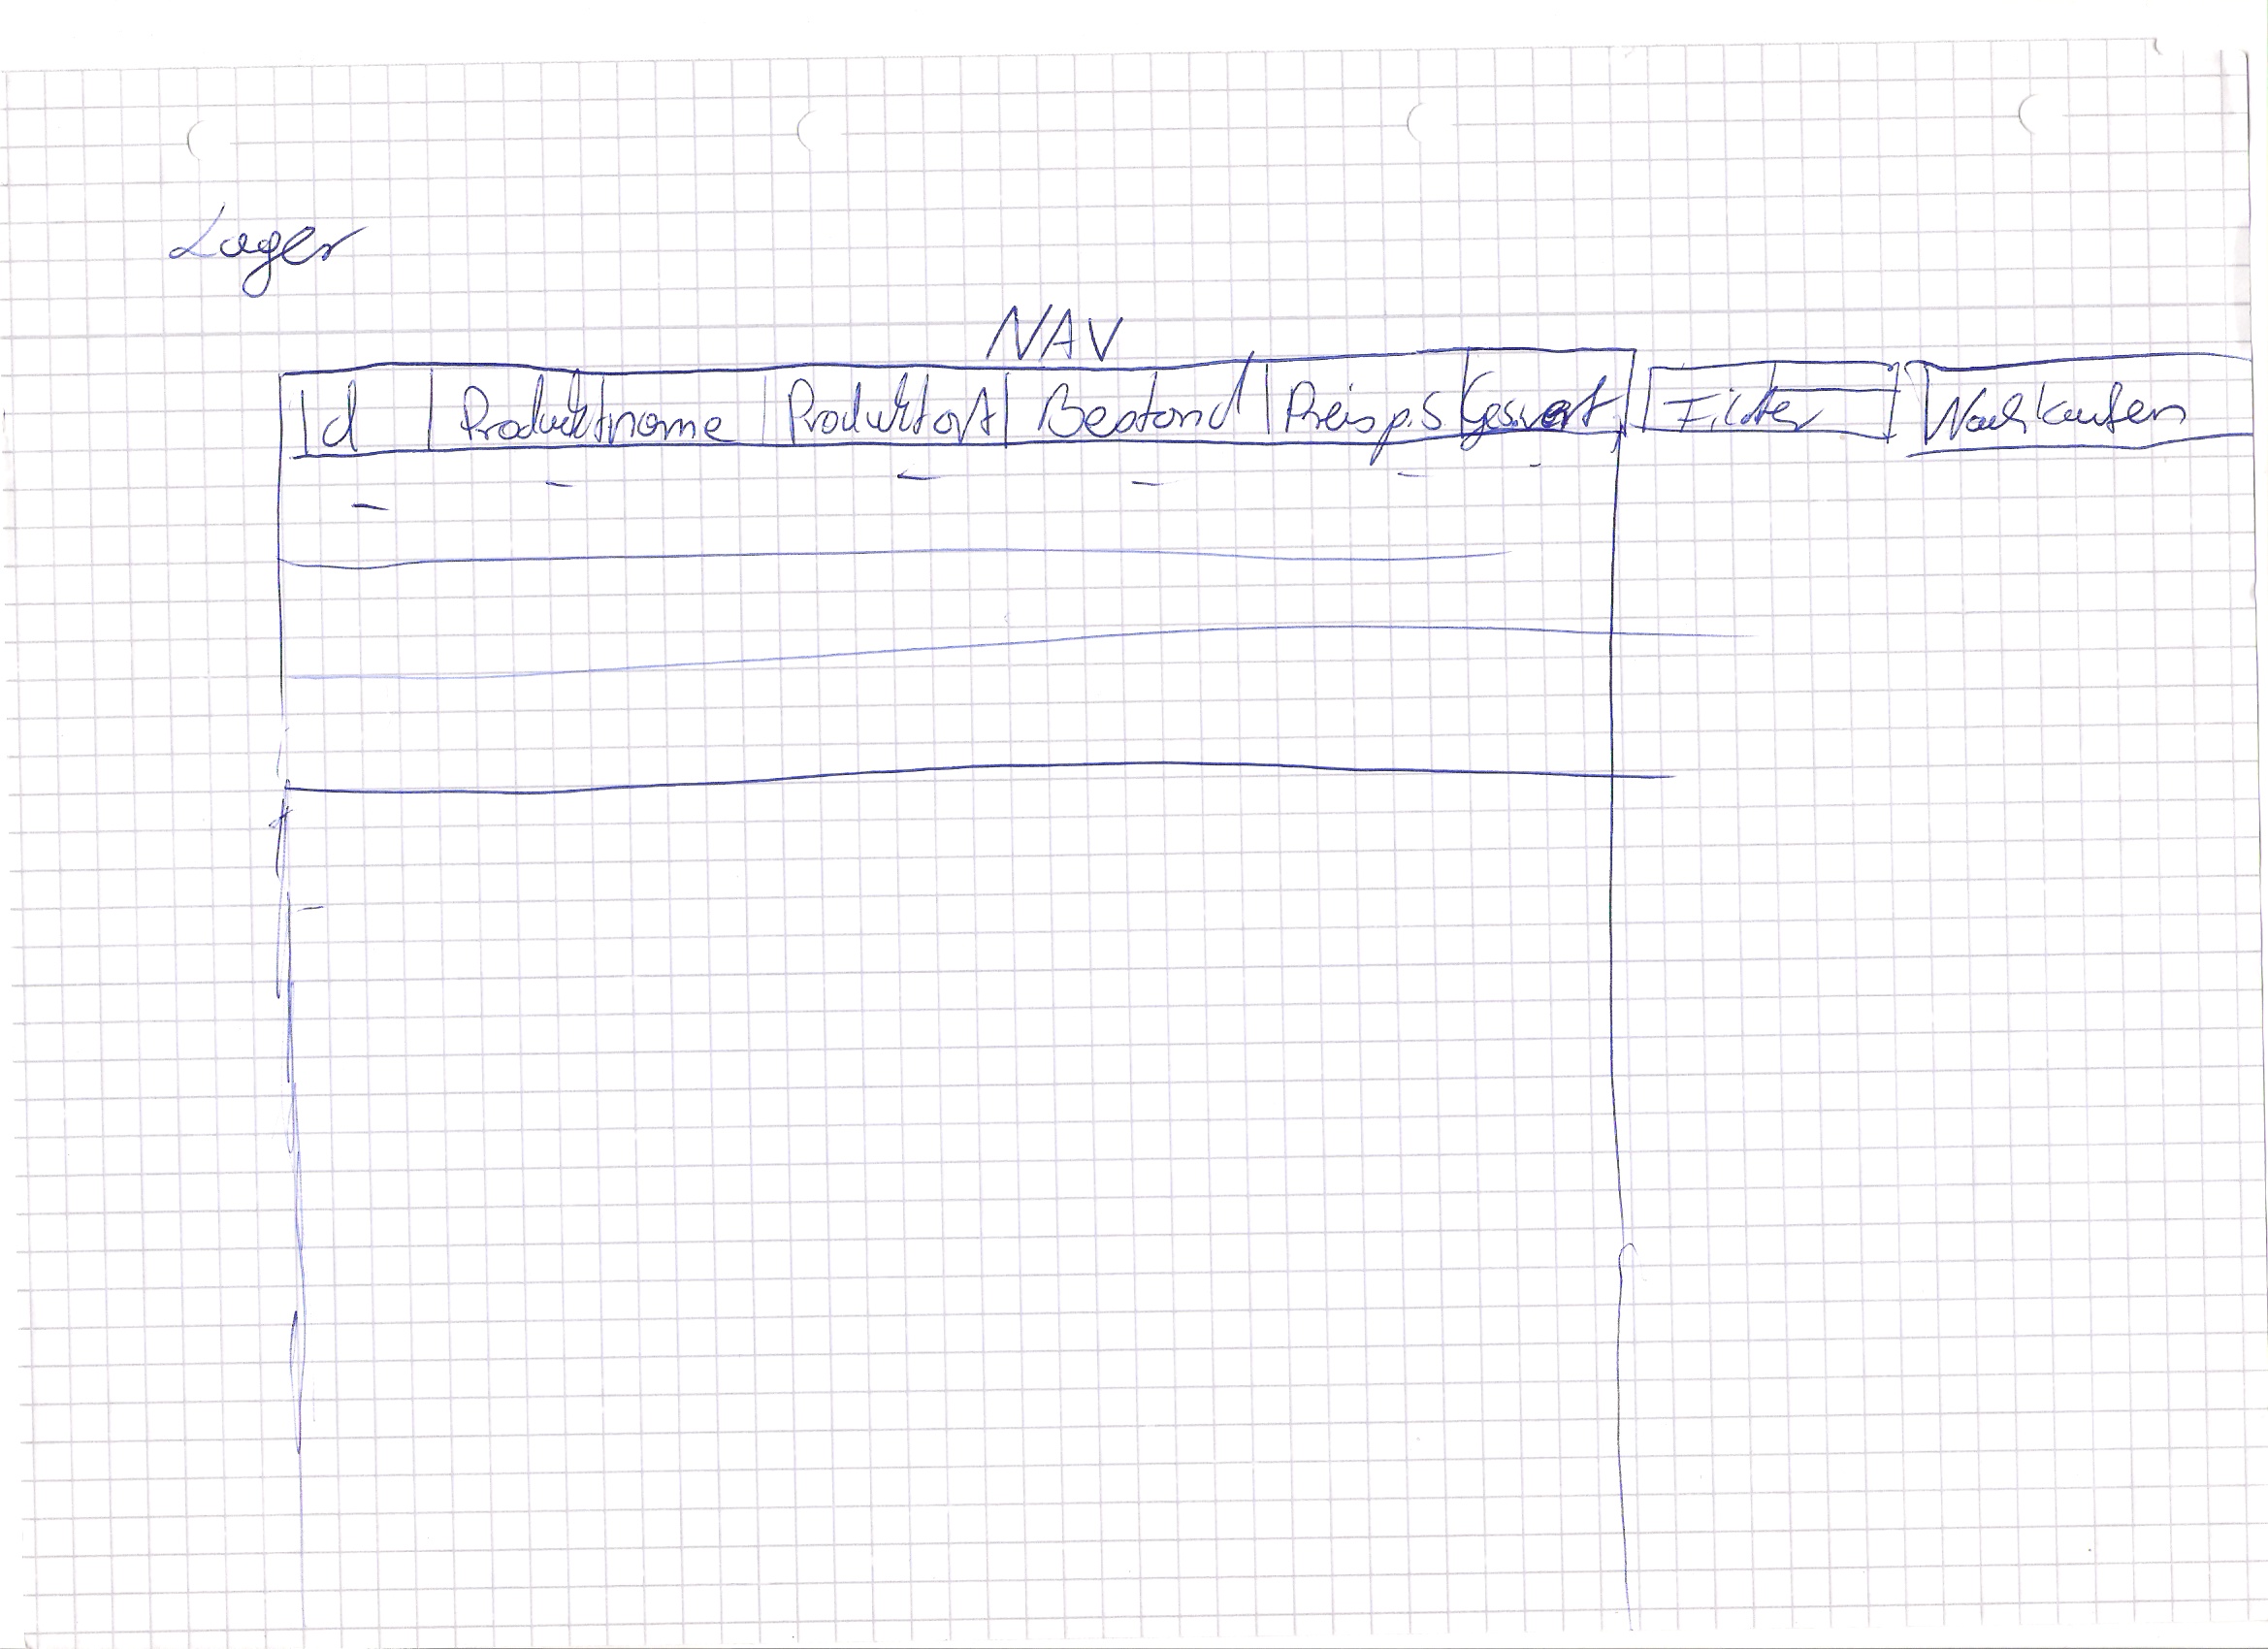 Lager
NAV
Id Produktname Produktart Bestand Preis p.S Ges.wert Filter Nachkaufen